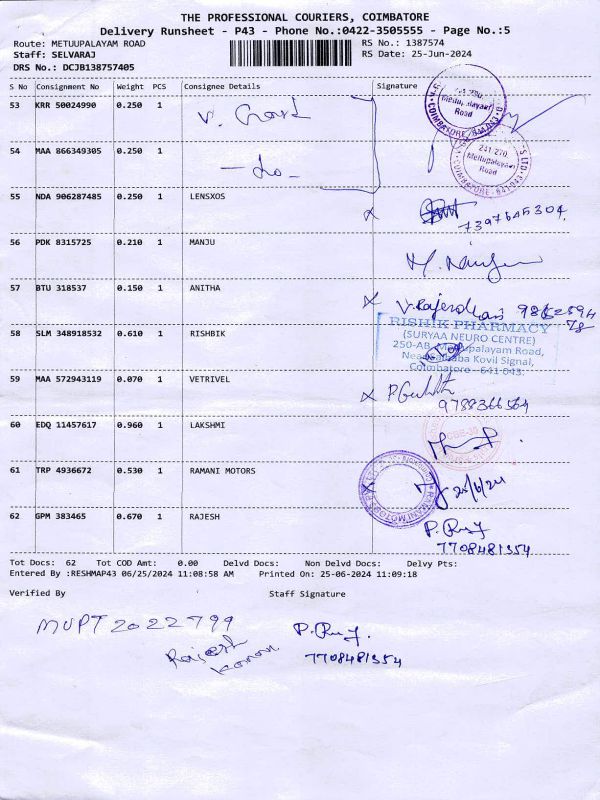 THE PROFESSIONAL COURIERS, COIMBATORE
Delivery Runsheet - P43 - Phone No.:0422-3505555 - Page No.:5
Route: METUUPALAYAM ROAD RS No.: 1387574
Staff: SELVARAJ RS Date: 25-Jun-2024
DRS No.: DCJB138757405
S No Consignment No Weight PCS Consignee Details Signature
53 KRR 50024990 0.250 1
231-270, Mettupalayam Road
54 MAA 866349305 0.250 1 - do -
231-270, Mettupalayam Road
COIMBATORE - 641 043
55 NDA 906287485 0.250 1 LENSXOS
7397645304
56 PDK 8315725 0.210 1 MANJU
57 BTU 318537 0.150 1 ANITHA
58 SLM 348918532 0.610 1 RISHBIK
RISHIK PHARMACY
(SURYAA NEURO CENTRE)
250-AB, Mettupalayam Road,
Near Saibaba Kovil Signal,
Coimbatore - 641 043.
59 MAA 572943119 0.070 1 VETRIVEL
9788366564
60 EDQ 11457617 0.960 1 LAKSHMI
61 TRP 4936672 0.530 1 RAMANI MOTORS
25/6/24
62 GPM 383465 0.670 1 RAJESH
7708481354
Tot Docs: 62 Tot COD Amt: 0.00 Delvd Docs: Non Delvd Docs: Delvy Pts:
Entered By :RESHMAP43 06/25/2024 11:08:58 AM Printed On: 25-06-2024 11:09:18
Verified By Staff Signature
MUPT 2022799
Rajesh
7708481354